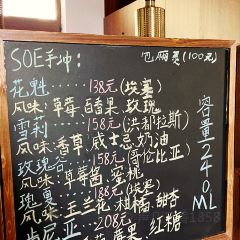 SOE手冲: 包厢费(100元)
花魁......138元(埃塞)
风味:草莓、百香果、玫瑰
雪莉......158元(洪都拉斯)
风味:香草、威士忌、奶油
玫瑰谷......158元(哥伦比亚)
风味:草莓酱、蜜桃
瑰夏......188元(埃塞)
风味:玉兰花、柑橘、甜杏
肯尼亚 208元
红糖
容量240ML